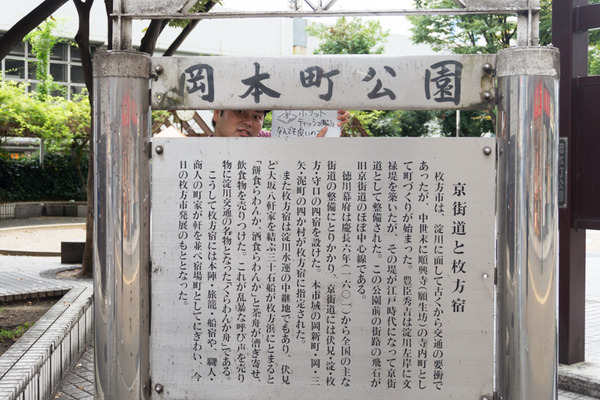 岡本町公園
京街道と枚方宿
枚方市は、淀川に面して古くから交通の要衝で
あったが、中世末に順興寺(願生坊)の寺内町とし
て町づくりが始まった。豊臣秀吉は淀川左岸に文
禄堤を築いたが、その堤が江戸時代になって京街
道として整備された。この公園前の街路の飛石が
旧京街道のほぼ中心線である。
徳川幕府は慶長六年(一六〇一)から全国の主な
街道の整備にとりかかり、京街道には伏見・淀・枚
方・守口の四宿を設けた。本市域の岡新町・岡・三
矢・泥町の四か村が枚方宿に指定された。
また枚方宿は淀川水運の中継地でもあり、伏見
と大坂八軒家を結ぶ三十石船が枚方浜にとまると
「餅食らわんか、酒食らわんか」と茶舟が漕ぎ寄せ、
飲食物を売りつけた。これが乱暴な呼び声を売り
物に淀川交通の名物となった「くらわんか舟」である。
こうして枚方宿には本陣・旅籠・船宿や、職人・
商人の町家が軒を並べ宿場町としてにぎわい、今
日の枚方市発展のもととなった。